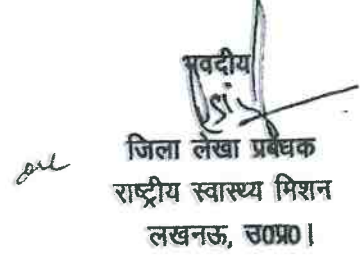 भवदीय
जिला लेखा प्रबंधक
राष्ट्रीय स्वास्थ्य मिशन
लखनऊ, उ0प्र0।